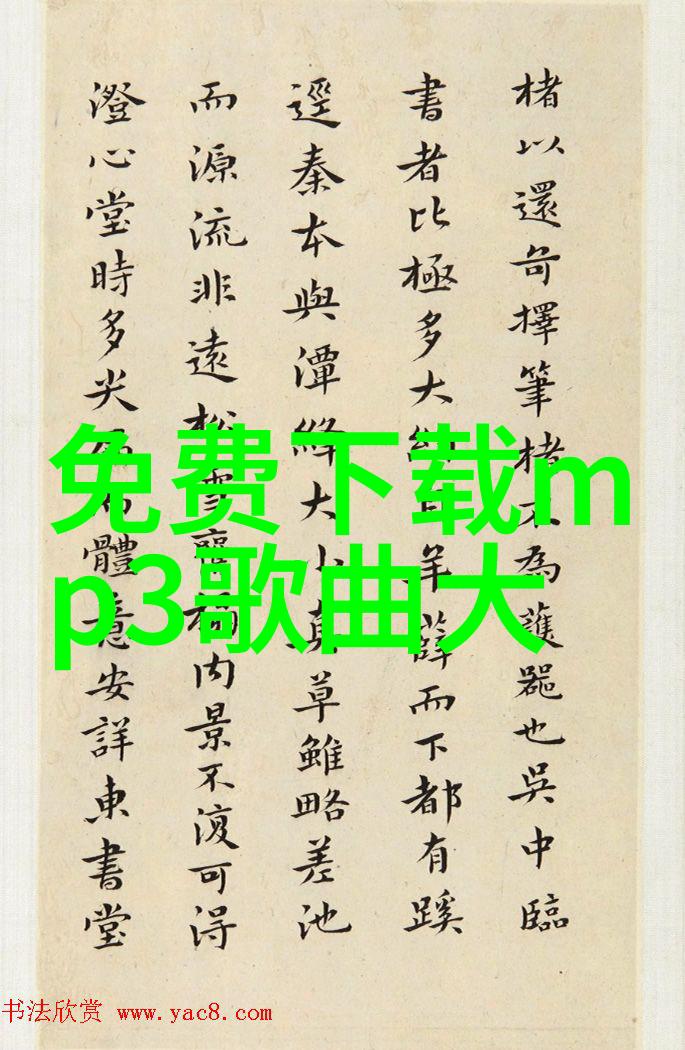 楮以還苟擇筆楮不為護噐也吳中臨
書者比極多大羊薛而下都有蹊
逕秦本與潭絳大小真草雖略差池
而源流非遠松雪臨內景不復可得
澄心堂時多尖體意安詳東書堂
免费下载m
p3歌曲大
书法欣赏 www.yac8.com